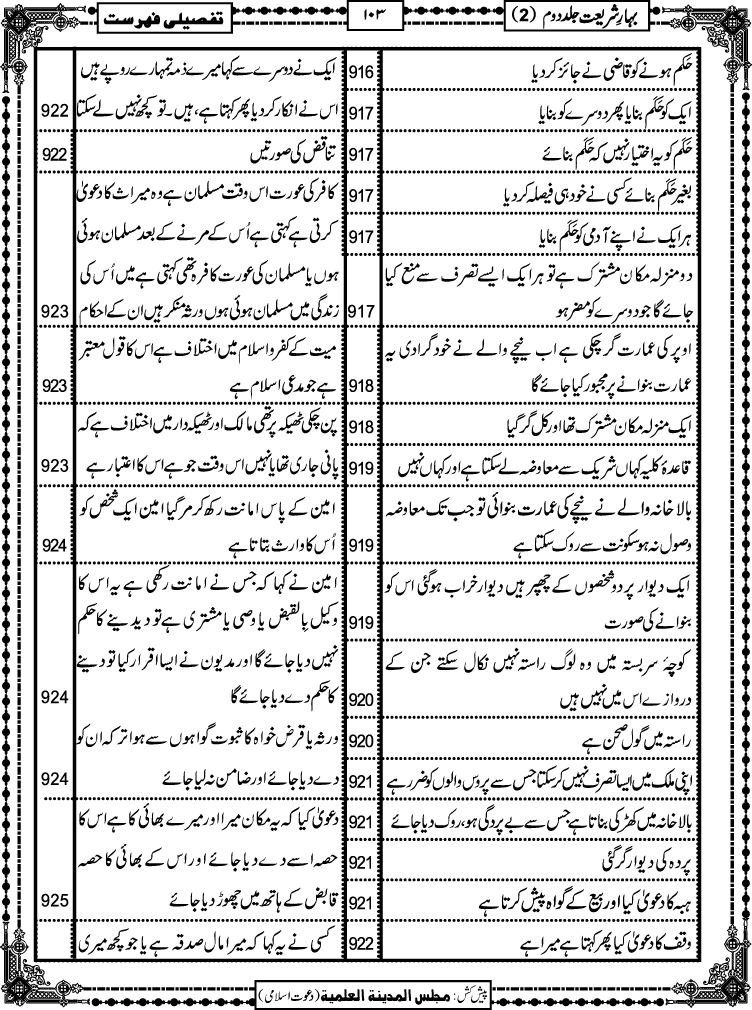 بہارِ شریعت جلد دوم (2)
۱۰۳
تفصیلی فہرست
حَکَم ہونے کو قاضی نے جائز کر دیا 916
ایک کو حَکَم بنایا پھر دوسرے کو بنایا 917
حَکَم کو یہ اختیار نہیں کہ حَکَم بنائے 917
بغیر حَکَم بنائے کسی نے خود ہی فیصلہ کر دیا 917
ہر ایک نے اپنے آدمی کو حَکَم بنایا 917
دو منزلہ مکان مشترک ہے تو ہر ایک ایسے تصرف سے منع کیا
جائے گا جو دوسرے کو مضر ہو 917
اوپر کی عمارت گر چکی ہے اب نیچے والے نے خود گرا دی یہ
عمارت بنوانے پر مجبور کیا جائے گا 918
ایک منزلہ مکان مشترک تھا اور کل گر گیا 918
قاعدۂ کلیہ کہاں شریک سے معاوضہ لے سکتا ہے اور کہاں نہیں 919
بالا خانہ والے نے نیچے کی عمارت بنوائی تو جب تک معاوضہ
وصول نہ ہو سکونت سے روک سکتا ہے 919
ایک دیوار پر دو شخصوں کے چھپر ہیں دیوار خراب ہو گئی اس کو
بنوانے کی صورت 919
کوچۂ سربستہ میں وہ لوگ راستہ نہیں نکال سکتے جن کے
دروازے اس میں نہیں ہیں 920
راستہ میں گول صحن ہے 920
اپنی ملک میں ایسا تصرف نہیں کر سکتا جس سے پروس والوں کو ضرر ہے 921
بالا خانہ میں کھڑکی بناتا ہے جس سے بے پردگی ہو، روک دیا جائے 921
پردہ کی دیوار گر گئی 921
ہبہ کا دعویٰ کیا اور بیع کے گواہ پیش کرتا ہے 921
وقف کا دعویٰ کیا پھر کہتا ہے میرا ہے 922
ایک نے دوسرے سے کہا میرے ذمہ تمہارے روپے ہیں
اس نے انکار کر دیا پھر کہتا ہے، ہیں۔ تو کچھ نہیں لے سکتا 922
تناقض کی صورتیں 922
کافر کی عورت اس وقت مسلمان ہے وہ میراث کا دعویٰ
کرتی ہے کہتی ہے اُس کے مرنے کے بعد مسلمان ہوئی
ہوں یا مسلمان کی عورت کافرہ تھی کہتی ہے میں اُس کی
زندگی میں مسلمان ہوئی ہوں ورثہ منکر ہیں ان کے احکام 923
میت کے کفر و اسلام میں اختلاف ہے اس کا قول معتبر
ہے جو مدعی اسلام ہے 923
پن چکی ٹھیکہ پر تھی مالک اور ٹھیکہ دار میں اختلاف ہے کہ
پانی جاری تھا یا نہیں اس وقت جو ہے اس کا اعتبار ہے 923
امین کے پاس امانت رکھ کر مر گیا امین ایک شخص کو
اُس کا وارث بتاتا ہے 924
امین نے کہا کہ جس نے امانت رکھی ہے یہ اس کا
وکیل بالقبض یا وصی یا مشتری ہے تو دیدینے کا حکم
نہیں دیا جائے گا اور مدیون نے ایسا اقرار کیا تو دینے
کا حکم دے دیا جائے گا 924
ورثہ یا قرض خواہ کا ثبوت گواہوں سے ہوا ترکہ ان کو
دے دیا جائے اور ضامن نہ لیا جائے 924
دعویٰ کیا کہ یہ مکان میرا اور میرے بھائی کا ہے اس کا
حصہ اسے دے دیا جائے اور اس کے بھائی کا حصہ
قابض کے ہاتھ میں چھوڑ دیا جائے 925
کسی نے یہ کہا کہ میرا مال صدقہ ہے یا جو کچھ میری
پیش کش: مجلس المدینۃ العلمیۃ (دعوت اسلامی)